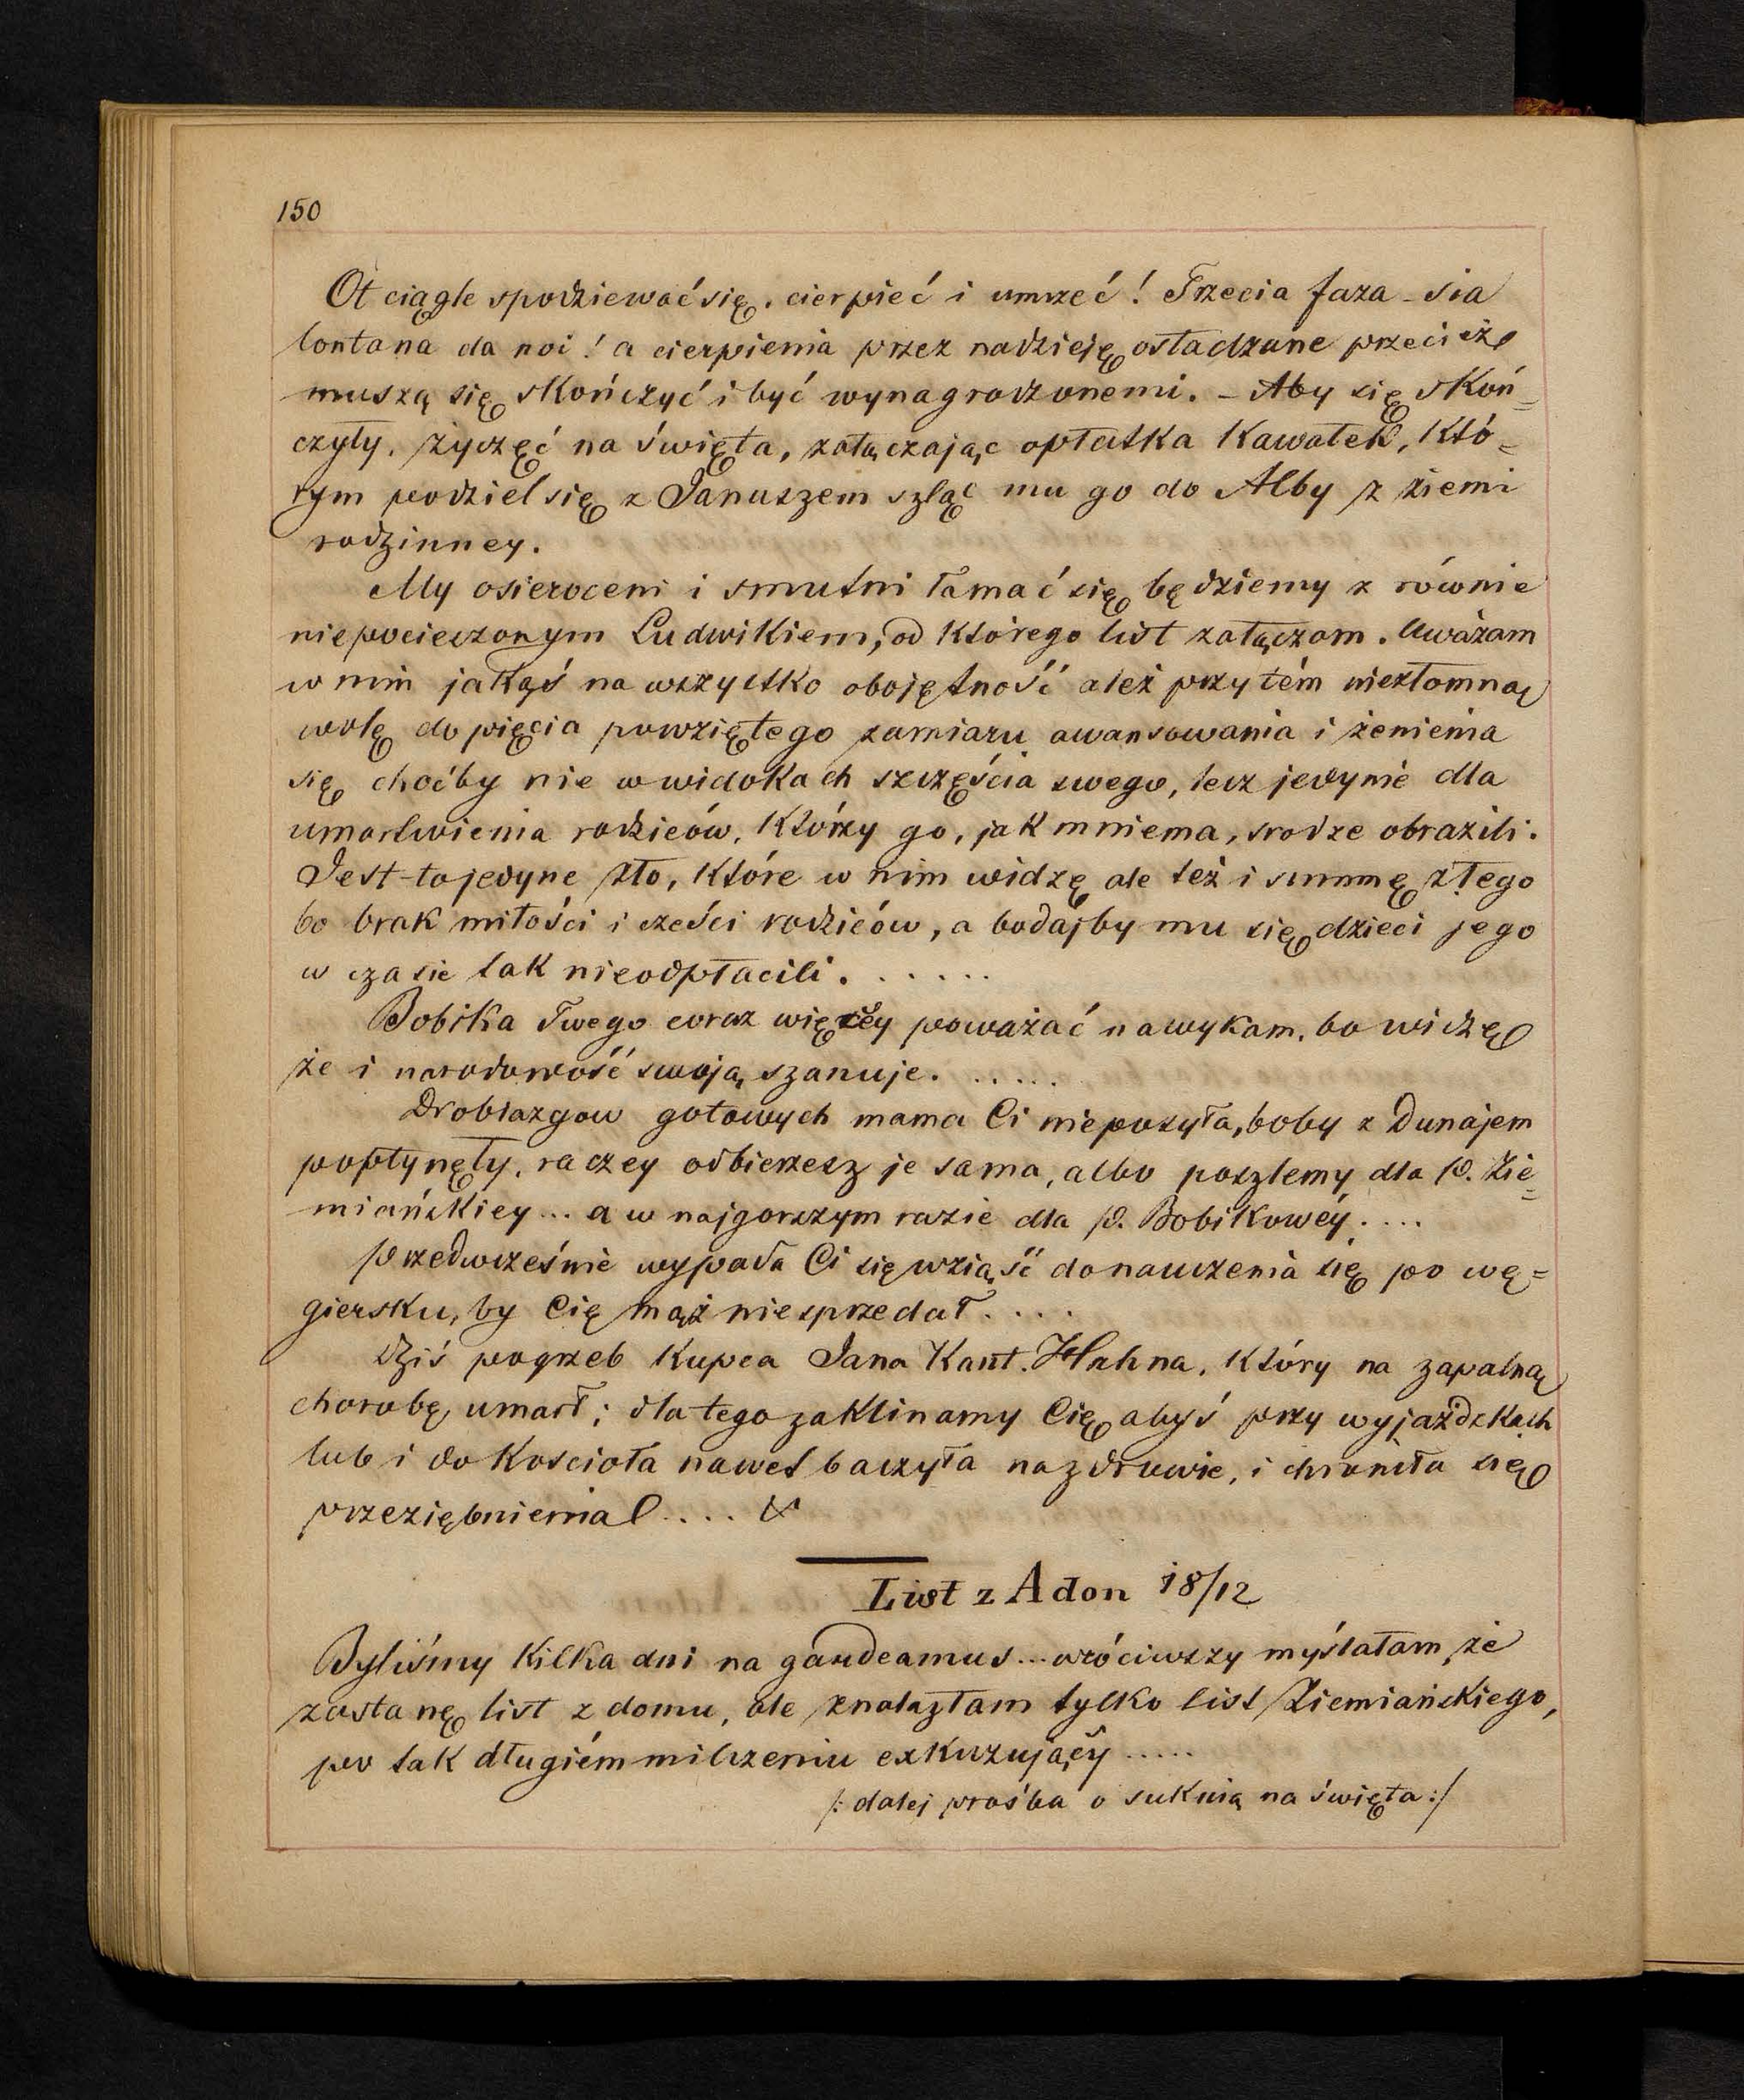 150
Ot ciągle spodziewać się, cierpieć i umrzeć! Trzecia faza – sia
lontana da noi! a cierpienia przez nadzieję osładzane przecież
muszą się skończyć i być wynagrodzonemi. – Aby się skoń-
czyły, życzęć na święta, załączając opłatka kawałek, któ=
rym podziel się z Januszem szląc mu go do Alby z ziemi
rodzinney.
My osieroceni i smutni łamać się będziemy z równie
niepocieszonym Ludwikiem, od którego list załączam. Uważam
w nim jakąś na wszystko obojętność ależ przytém niezłomną
wolę dopięcia powziętego zamiaru awansowania i żenienia
się, choćby nie w widokach szczęścia swego, lecz jedynie dla
umartwienia rodziców, którzy go, jak mniema, srodze obrazili.
Jest-to jedyne złe, które w nim widzę ale też i summę złego
bo brak miłości i cześci rodziców, a bodajby mu się dzieci jego
w czasie tak nieodpłacili. . . . . . .
Bobika Twego coraz więcéy poważać nawykam, bo widzę
że i narodowość swoją szanuje. . . . . .
Drobiazgow gotowych mama Ci nieposyła, boby z Dunajem
popłynęły, raczey odbierzesz je sama, albo poszlemy dla P. Zie=
miańskiey ... a w najgorszym razie dla p. Bobikowéy . . . .
Przedwcześnie wypada Ci się wziąść do nauczenia się po wę=
giersku, by Cię mąż niesprzedał . . . .
Dziś pogrzeb kupca Jana Kant. Hahna, który na zapalną
chorobę umarł; dla tego zaklinamy Cię abyś przy wyjazdkach
lub i do kościoła nawet baczyła na zdrowie, i chroniła się
przeziębnienia! . . . .
List z Adon 18/12
Byliśmy kilka dni na gaudeamus ... wróciwszy myślałam, że
zastanę list z domu, ale znalazłam tylko list Ziemiańskiego,
po tak długiém milczeniu exkuzujący .....
/: dalej prośba o suknią na święta :/